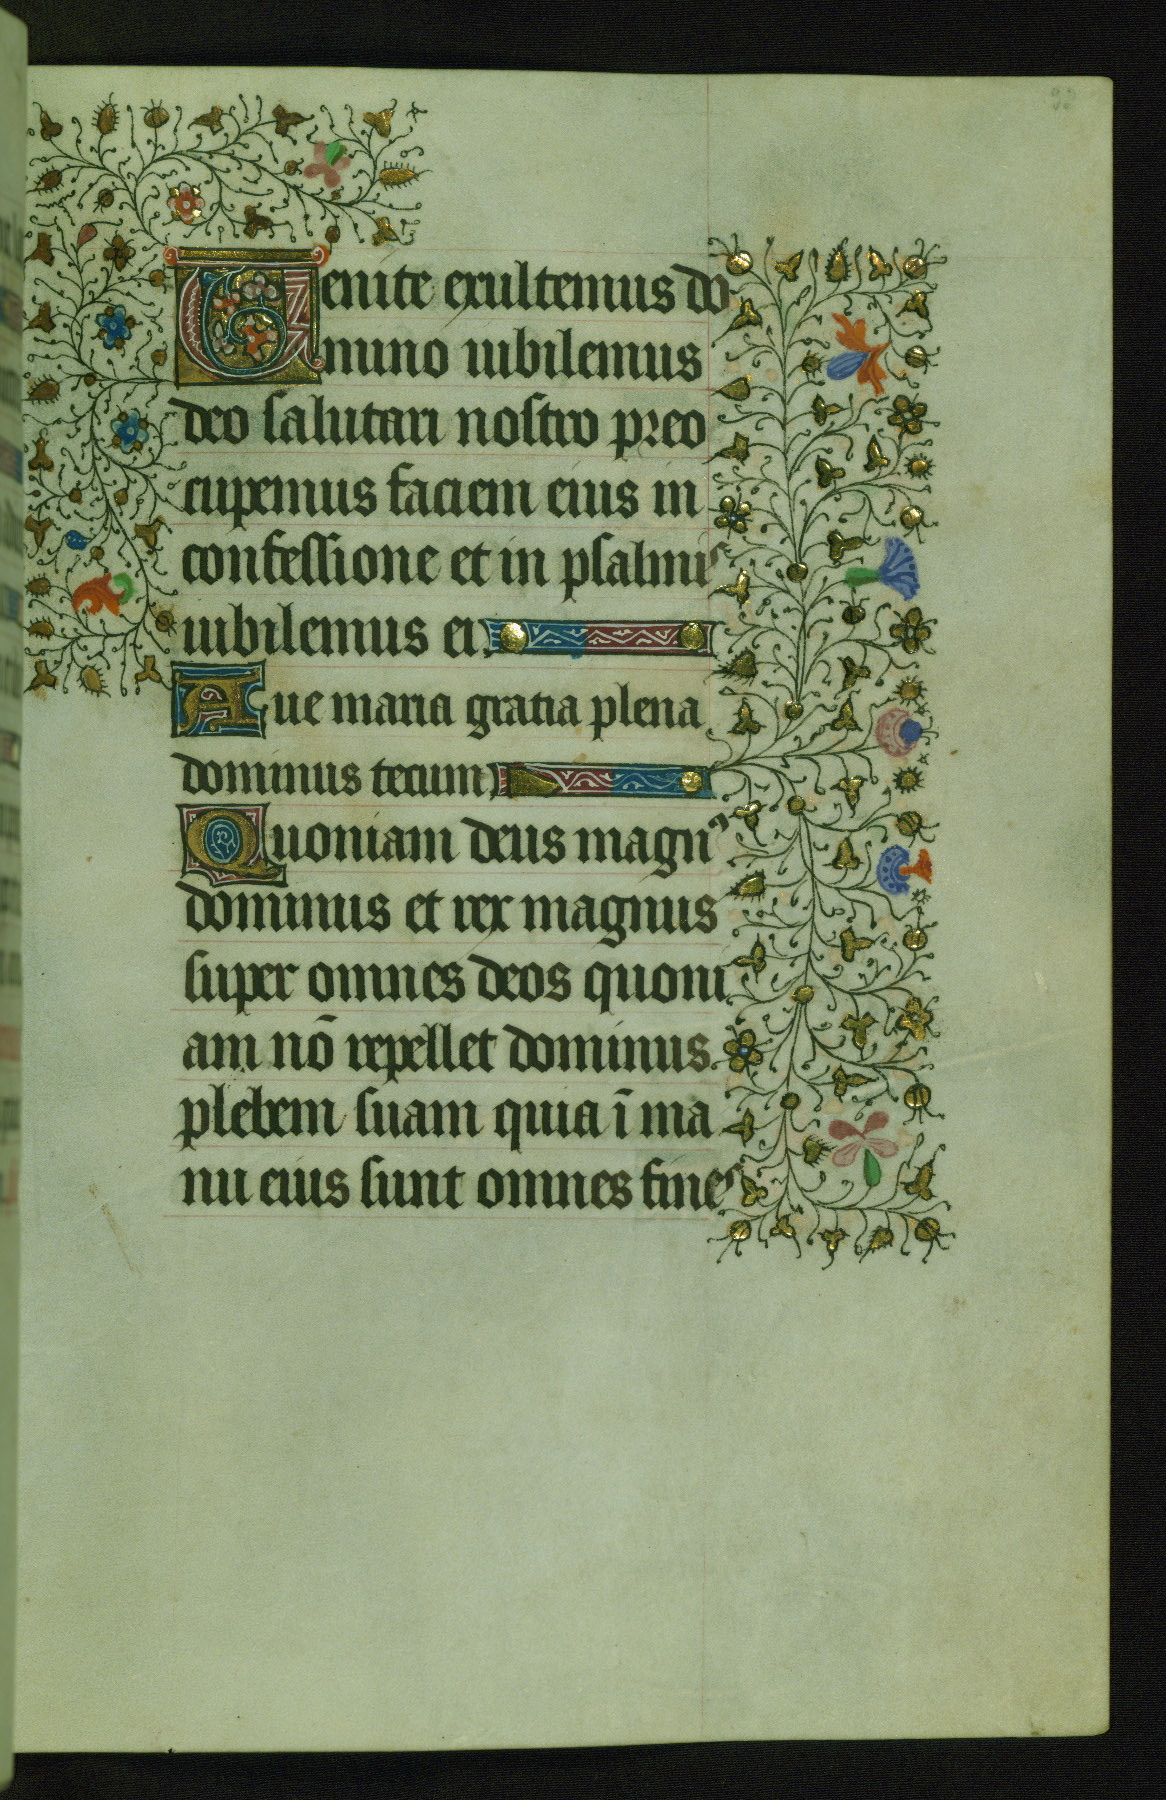 Venite exultemus do
mino iubilemus
deo salutari nostro preo
cupemus faciem eius in
confessione et in psalmis
iubilemus ei.
Aue maria gratia plena
dominus tecum
Quoniam deus magnꝰ
dominus et rex magnus
super omnes deos quoni
am nō repellet dominus.
plebem suam quia ī ma
nu eius sunt omnes fines